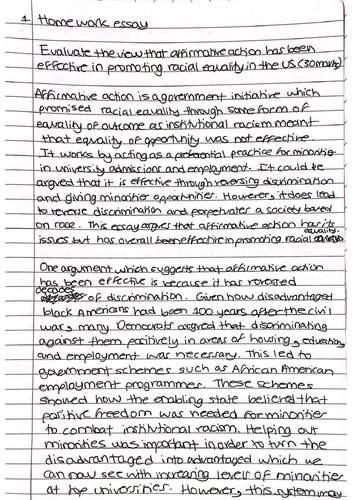 1 Homework essay
Evaluate the view that affirmative action has been
effective in promoting racial equality in the US (30marks)
Affirmative action is a government initiative which
promised racial equality through some form of
equality of outcome as institutional racism meant
that equality of opportunity was not effective.
It works by acting as a preferential practice for minorities
in university admissions and employment. It could be
argued that it is effective through reversing discrimination
and giving minorities opportunities. However, it does lead
to reverse discrimination and perpetuates a society based
on race. This essay argues that affirmative action has its
issues but has overall been effective in promoting racial equality.
One argument which suggests that affirmative action
has been effective is because it has reversed
decades of discrimination. Given how disadvantaged
black Americans had been 100 years after the civil
war, many Democrats argued that discriminating
against them positively in areas of housing, education
and employment was necessary. This led to
government schemes such as African American
employment programmes. These schemes
showed how the enabling state believed that
positive freedom was needed for minorities
to combat institutional racism. Helping out
minorities was important in order to turn the
disadvantaged into advantaged which we
can now see with increasing levels of minorities
at top universities. However, this system may